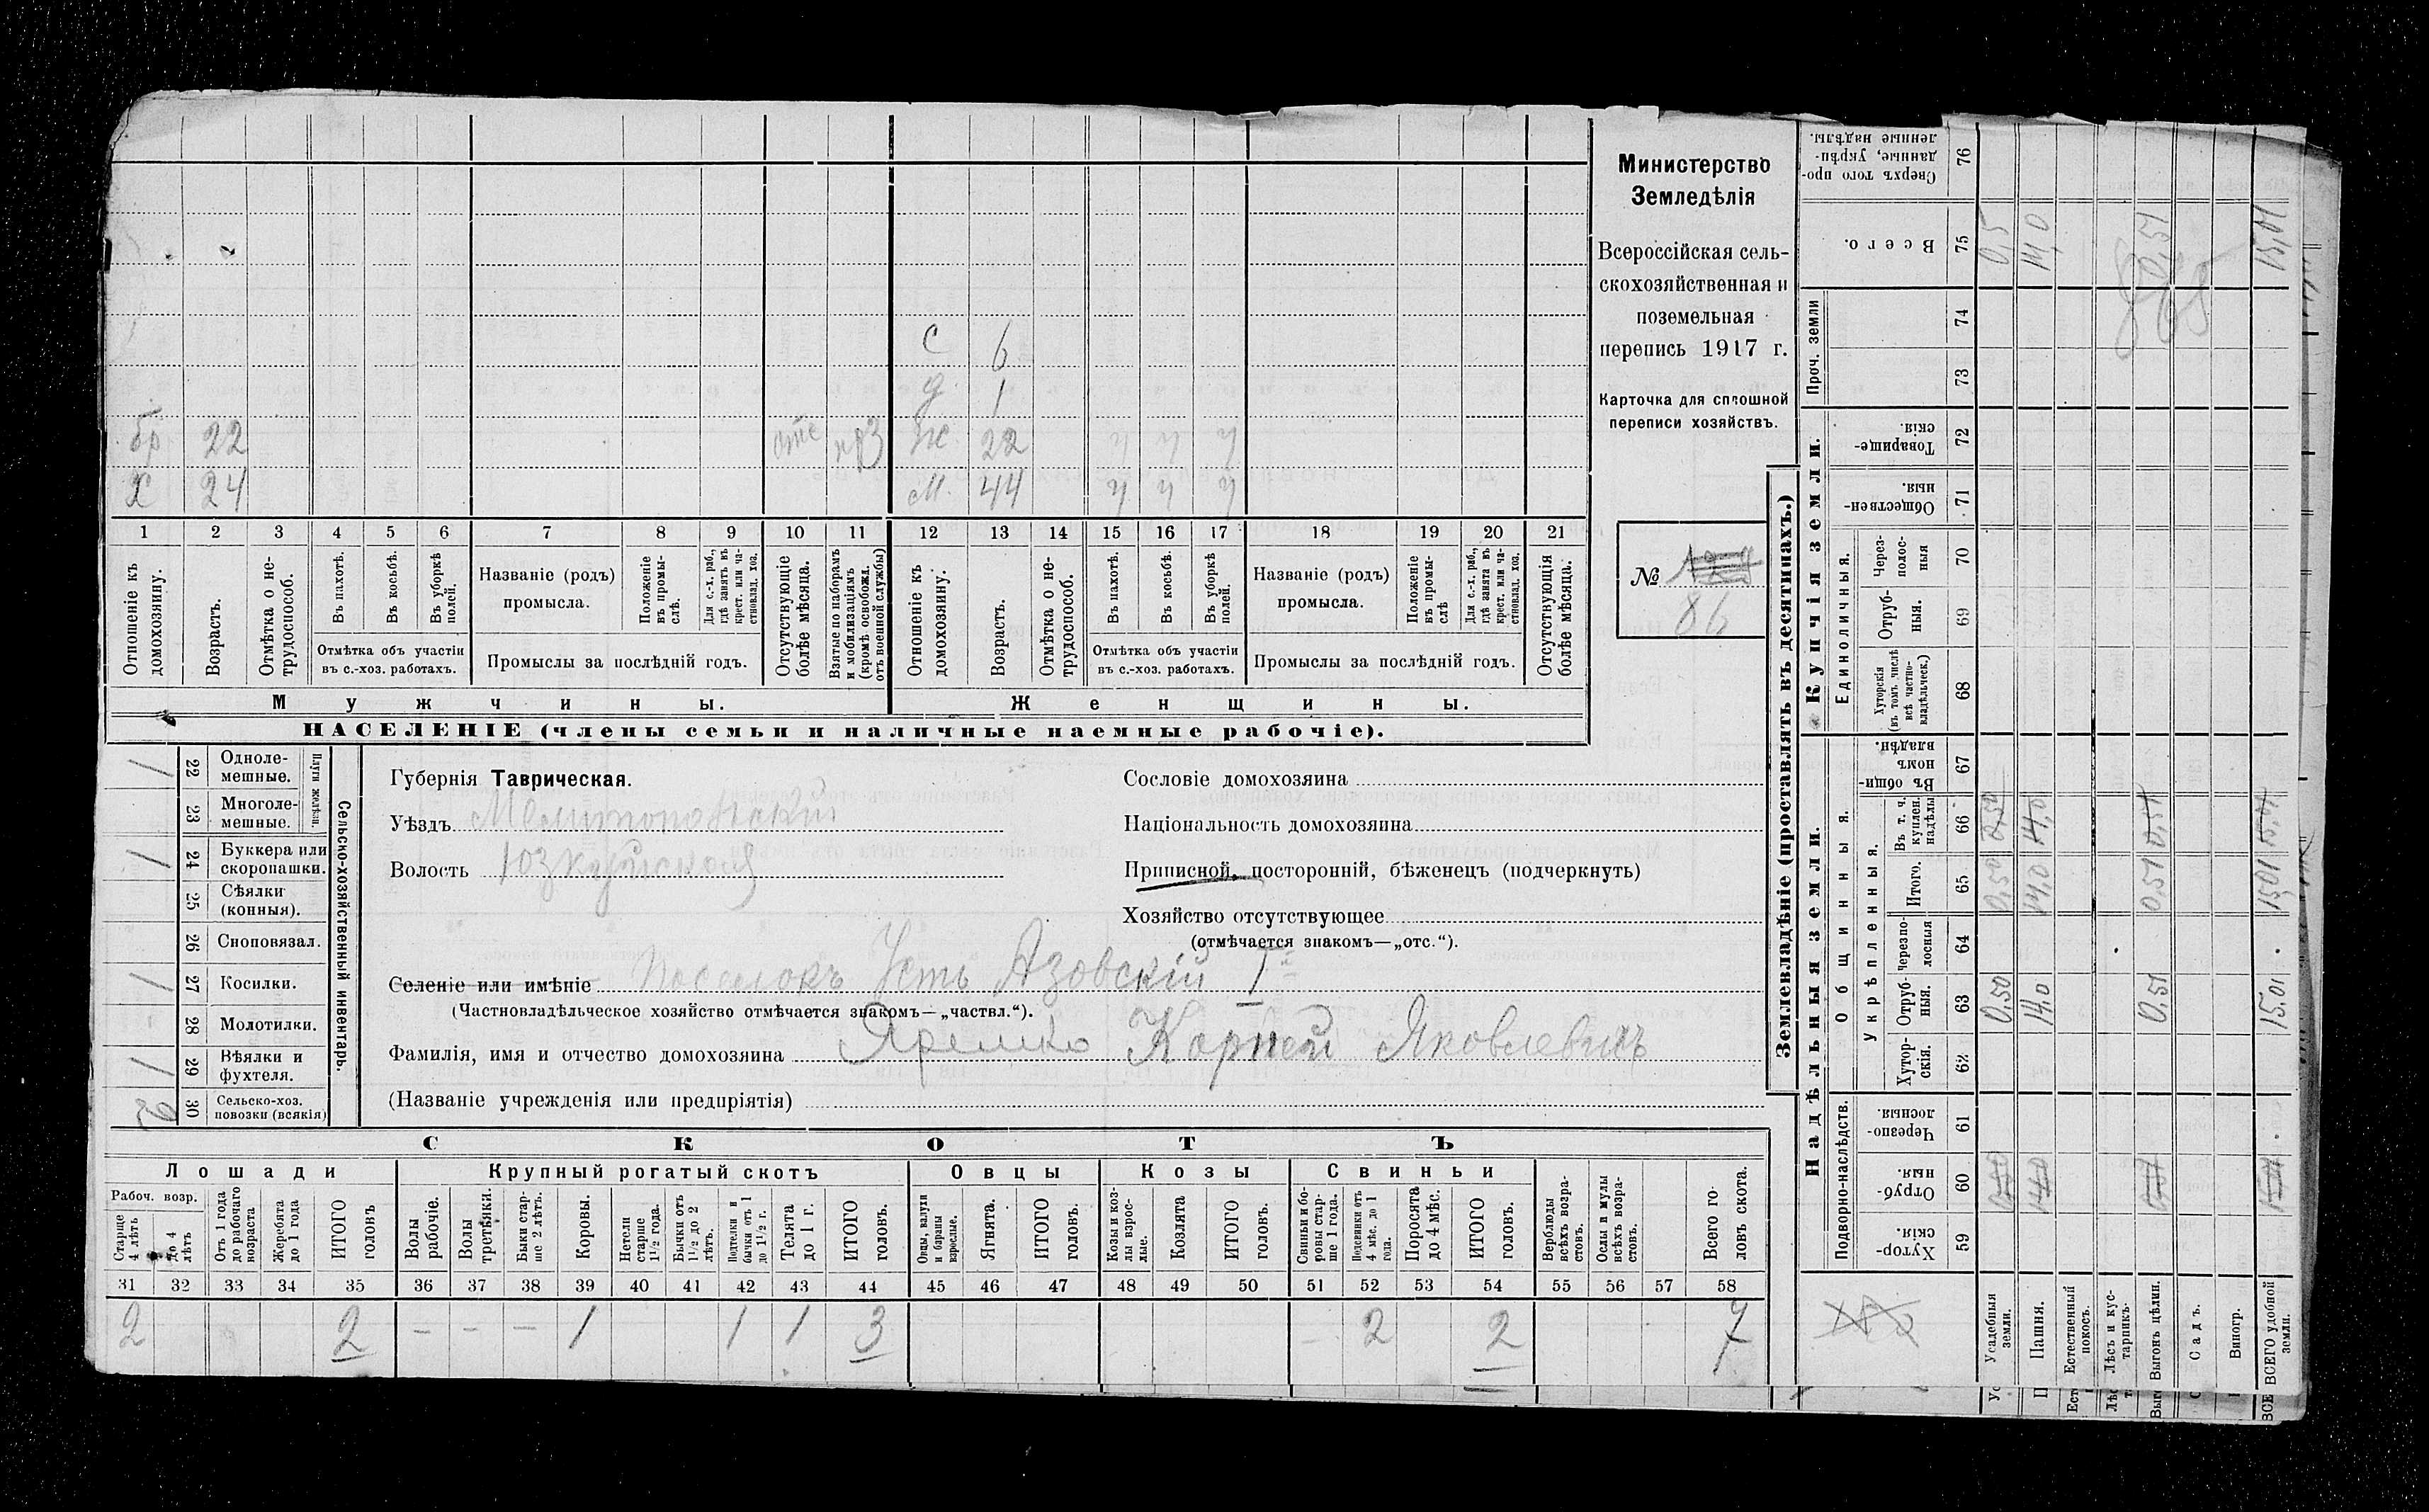 Министерство
Земледѣлія
Всероссійская сель-
скохозяйственная и
поземельная
перепись 1917 г.
Карточка для сплошной
переписи хозяйствъ.
№
86
С 6
д 1
бр 22 отс Ж. 22 ч ч ч
Х 24 М. 44 ч ч ч
1 2 3 4 5 6 7 8 9 10 11 12 13 14 15 16 17 18 19 20 21
Отношеніе къ домохозяину.
Возрастъ.
Отмѣтка о не-трудоспособ.
Въ пахотѣ.
Въ косьбѣ.
Въ уборкѣ полей.
Отмѣтка объ участіи
въ с.-хоз. работахъ.
Названіе (родъ)
промысла.
Положеніе въ промы-слѣ.
Для с.-х. раб., гдѣ занятъ въ крест. или ча-стновлад. хоз.
Промыслы за послѣдній годъ.
Отсутствующіе болѣе мѣсяца.
Взятые по наборамъ и мобилизаціямъ (кромѣ освобожд. отъ военной службы)
Отношеніе къ домохозяину.
Возрастъ.
Отмѣтка о не-трудоспособ.
Въ пахотѣ.
Въ косьбѣ.
Въ уборкѣ полей.
Отмѣтка объ участіи
въ с.-хоз. работахъ.
Названіе (родъ)
промысла.
Положеніе въ промы-слѣ
Для с.-х. раб., гдѣ занята въ крест. или ча-стновлад. хоз.
Промыслы за послѣдній годъ.
Отсутствующія болѣе мѣсяца.
Мужчины.
Женщины.
НАСЕЛЕНІЕ (члены семьи и наличные наемные рабочіе).
Сельско-хозяйственный инвентарь.
Плуги желѣзн.
1 22 Одноле-мешные.
23 Многоле-мешные.
1 24 Буккера или скоропашки.
25 Сѣялки (конныя).
26 Сноповязал.
1 27 Косилки.
28 Молотилки.
1 29 Вѣялки и фухтеля.
30 Сельско-хоз. повозки (всякія)
Губернія Таврическая.
Уѣздъ Мелитопольскій
Волость Юзкуйская
Сословіе домохозяина
Національность домохозяина
Приписной, посторонній, бѣженецъ (подчеркнуть)
Хозяйство отсутствующее
(отмѣчается знакомъ—„отс.“).
Селеніе или имѣніе Поселокъ Усть Азовскій I
(Частновладѣльческое хозяйство отмѣчается знакомъ—„частвл.“).
Фамилія, имя и отчество домохозяина Яремко Корней Яковлевичъ
(Названіе учрежденія или предпріятія)
СКОТЪ
Лошади
Крупный рогатый скотъ
Овцы
Козы
Свиньи
Рабоч. возр.
Старше 4 лѣтъ
До 4 лѣтъ
Отъ 1 года до рабочаго возраста
Жеребята до 1 года
ИТОГО головъ
Волы рабочіе.
Волы третьяки.
Быки стар-ше 2 лѣтъ.
Коровы.
Нетели старше 1½ года.
Бычки отъ 1½ до 2 лѣтъ.
Подтелки и бычки отъ 1 до 1½ г.
Телята до 1 г.
ИТОГО головъ.
Овцы, валухи и бараны взрослые.
Ягнята.
ИТОГО головъ.
Козы и коз-лы взрос-лые.
Козлята
ИТОГО головъ.
Свиньи и бо-ровы стар-ше 1 года.
Подсвинки отъ 4 мѣс. до 1 года.
Поросята до 4 мѣс.
ИТОГО головъ.
Верблюды всѣхъ возра-стовъ.
Ослы и мулы всѣхъ возра-стовъ.
Всего го-ловъ скота.
31 32 33 34 35 36 37 38 39 40 41 42 43 44 45 46 47 48 49 50 51 52 53 54 55 56 57 58
2 2 – – – 1 1 1 3 – 2 2 7
Землевладѣніе (проставлять въ десятинахъ.)
Надѣльныя земли.
Купчія земли.
Проч. земли
Подворно-наслѣдств.
Общинныя.
Укрѣпленныя.
Единоличныя.
59 Хутор-скія.
60 Отруб-ныя.
61 Черезпо-лосныя.
62 Хутор-скія.
63 Отруб-ныя. 0,50 14,0 0,51 15,01
64 Черезпо-лосныя
65 Итого. 0,50 14,0 0,51 15,01
66 Въ т. ч. куплен. надѣлы
67 Въ общи-номъ владѣн.
68 Хуторскія (въ томъ числѣ всѣ частно-владѣльческ.)
69 Отруб-ныя.
70 Через-полос-ныя
71 Обществен-ныя.
72 Товарище-скія.
73
74
75 Всего. 0,5 14,0 0,51 15,01
76 Сверхъ того про-данные, укрѣп-ленные надѣлы.
Усадебныя земли.
Пашня.
Естественный покосъ.
Лѣсъ и кус-тарникъ.
Выгонъ цѣлин.
Садъ.
Виногр.
ВСЕГО удобной земли.